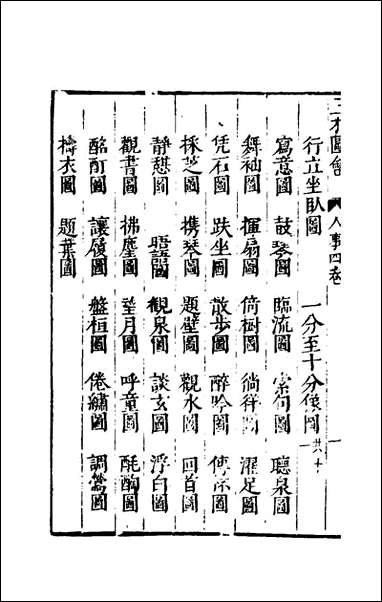 三才圖會 人事四卷 一
行立坐臥圖 一分至十分像圖共十
寫意圖 鼓琴圖 臨流圖 索句圖 聽泉圖
舞袖圖 揮扇圖 倚樹圖 徜徉圖 濯足圖
凭石圖 趺坐圖 散步圖 醉吟圖
採芝圖 携琴圖 題壁圖 觀水圖 回首圖
靜憩圖 晤語圖 觀泉圖 談玄圖 浮白圖
觀書圖 拂塵圖 望月圖 呼童圖 酕醄圖
酩酊圖 讓履圖 盤桓圖 倦繡圖 調鶯圖
擣衣圖 題葉圖